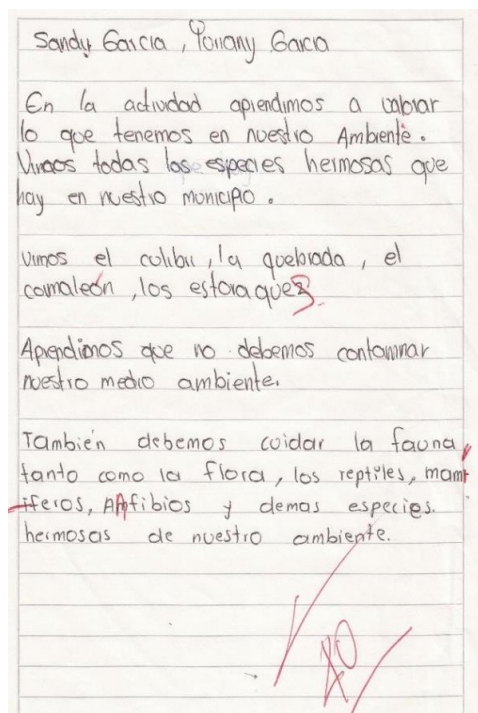 Sandy Garcia, Yorlany Garcia
En la actividad aprendimos a valorar
lo que tenemos en nuestro Ambiente.
Vimos todas las especies hermosas que
hay en nuestro municipio.
Vimos el colibri, la quebrada, el
camaleón, los estoraques.
Aprendimos que no debemos contaminar
nuestro medio ambiente.
También debemos cuidar la fauna
tanto como la flora, los reptiles, mami
feros, Anfibios y demas especies.
hermosas de nuestro ambiente.
40